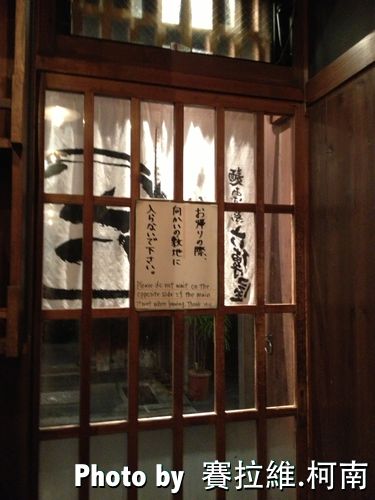 お帰りの際、
向かいの敷地に
入らないで下さい。
Please do not wait on the
opposite side of the main
street when leaving. Thank you.
Photo by 賽拉維.柯南